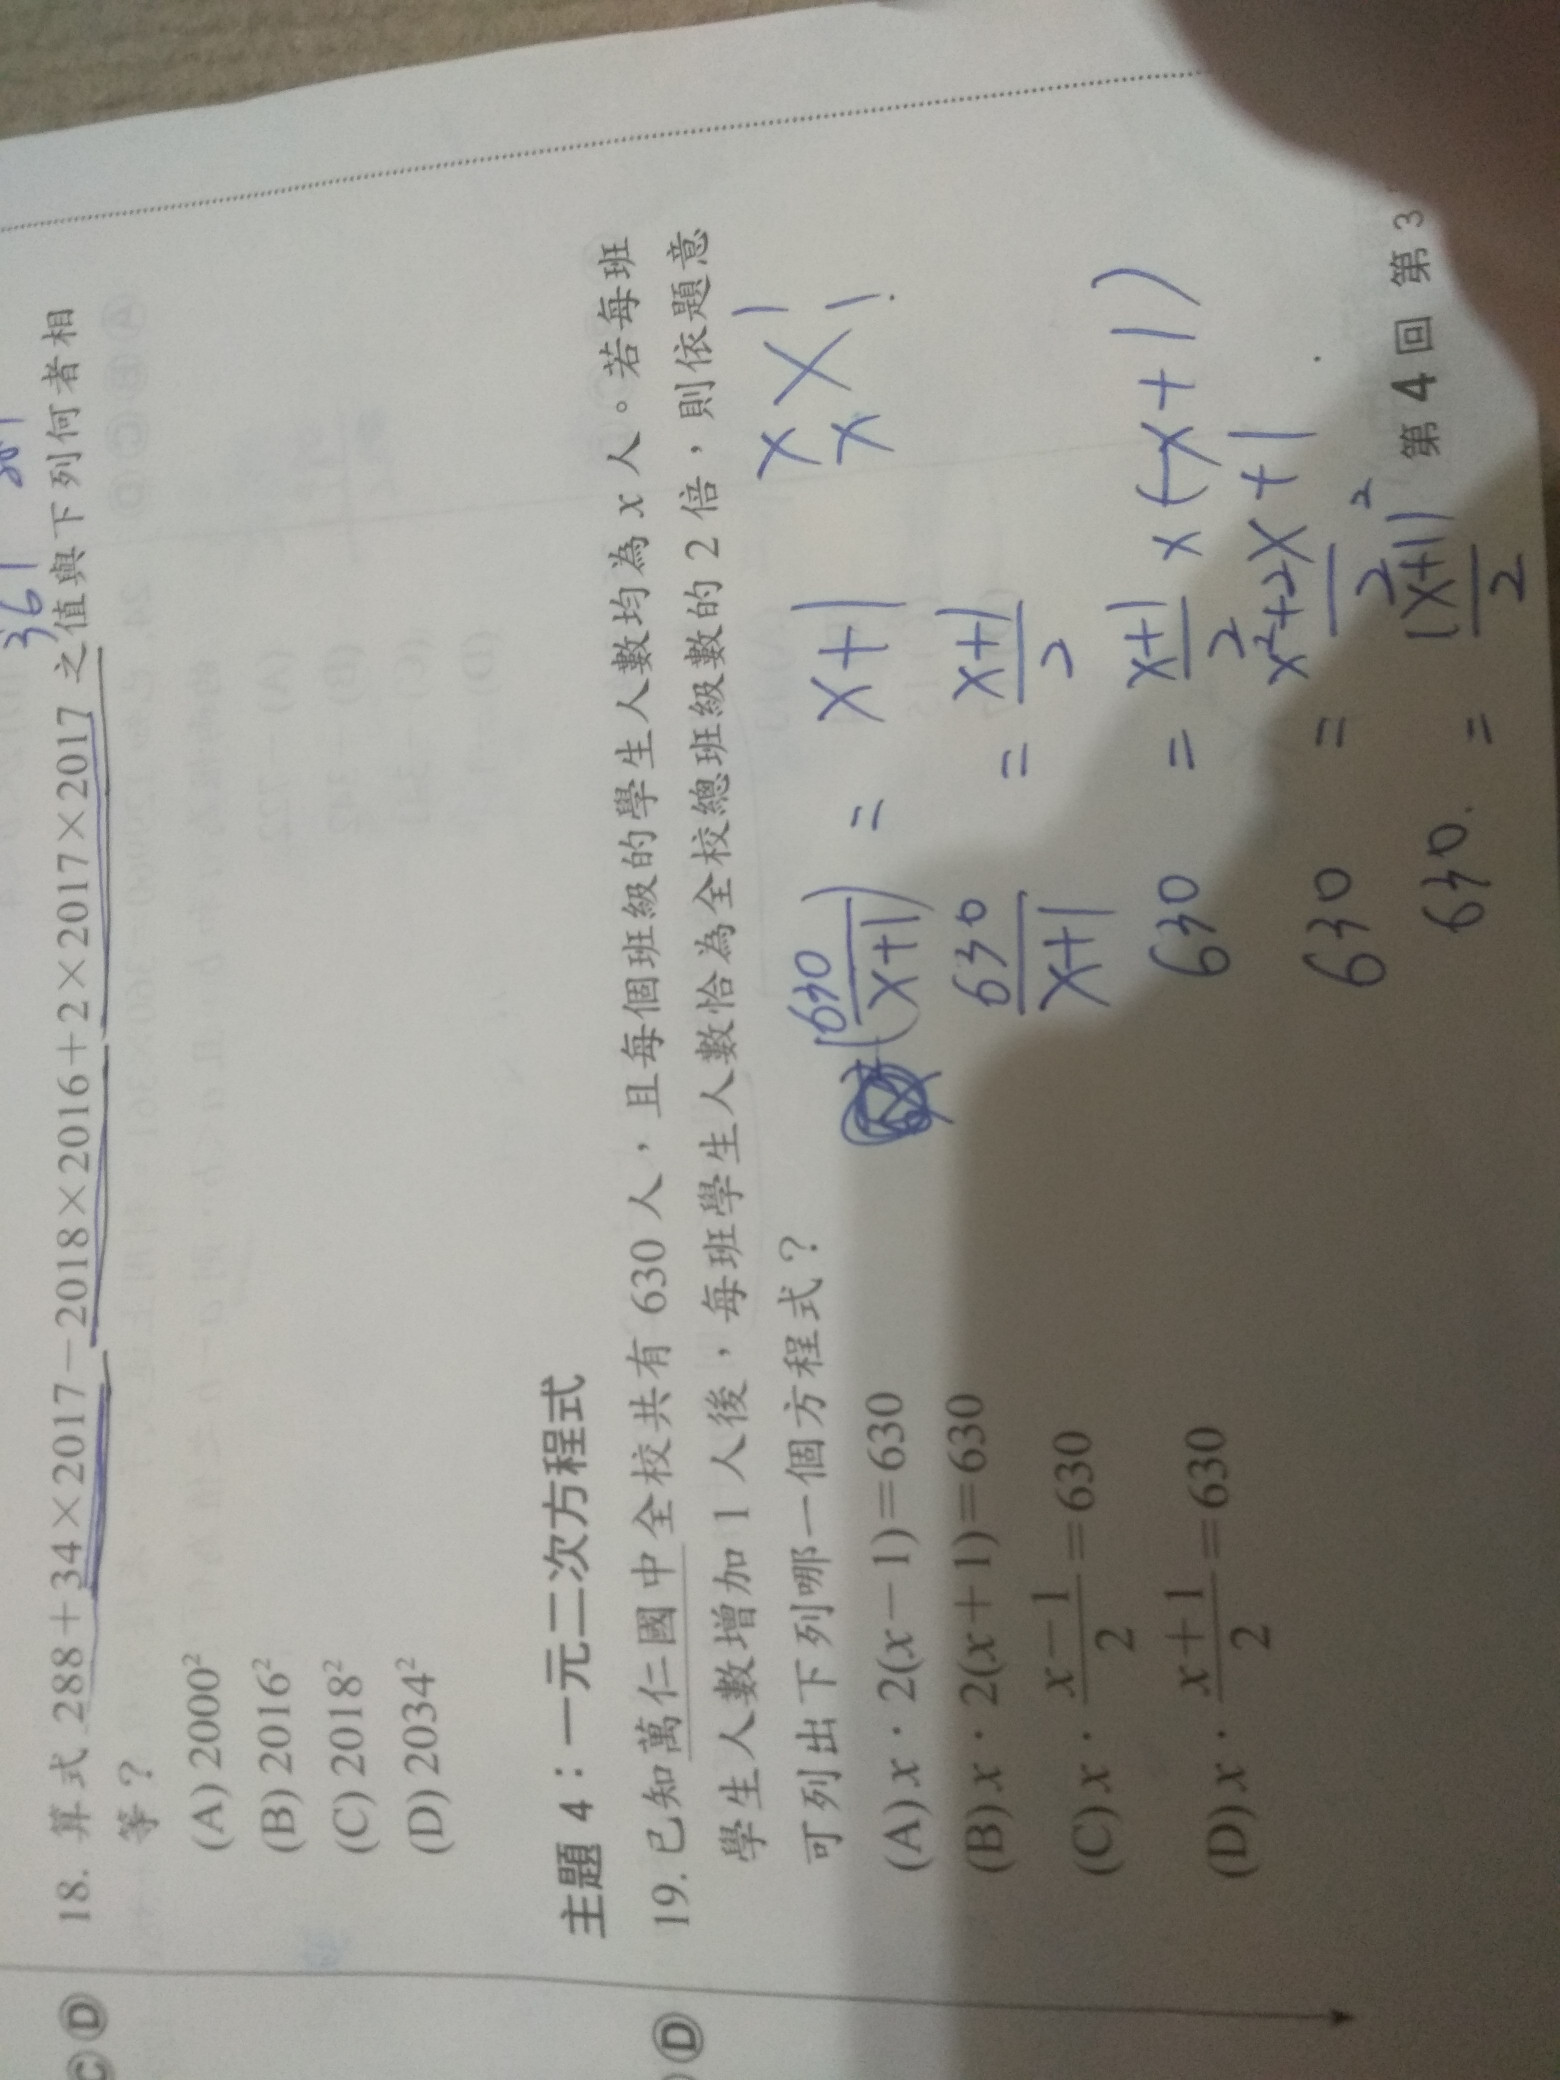 361
18. 算式 288+34×2017−2018×2016+2×2017×2017 之值與下列何者相
等？
(A) 2000²
(B) 2016²
(C) 2018²
(D) 2034²
主題 4：一元二次方程式
19. 已知萬仁國中全校共有 630 人，且每個班級的學生人數均為 x 人。若每班
學生人數增加 1 人後，每班學生人數恰為全校總班級數的 2 倍，則依題意
可列出下列哪一個方程式？
(A) x · 2(x−1)=630
(B) x · 2(x+1)=630
(C) x · (x−1)/2=630
(D) x · (x+1)/2=630
630/(x+1) = x+1
630/x+1 = x+1/2
630 = x+1/2 × (x+1)
630 = x²+2x+1/2
630 = (x+1)²/2
x 1
x 1
第 4 回 第 3
C D
D